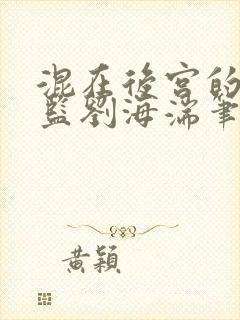 混在後宮的
藍劉海湍筆
黃穎